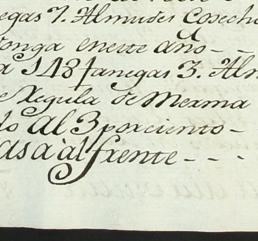 egas 7. Almudes Cosech
onga eneste año - -
a 148 fanegas 3. Alm
e Regula de Merma
do al 3 porciento -
asa àl frente - - -